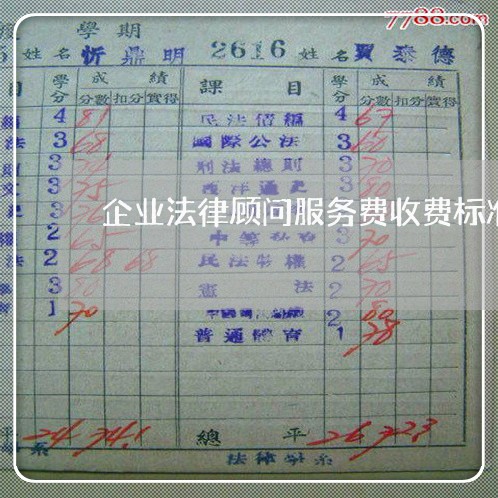 7788.com
學期
姓名 忻鼎明 2616 姓名 賈泰德
目 學分 成績 課目 學分 成績
分數 扣分 實得 分數 扣分 實得
4 81 民法債編 4 67
法 3 68 國際公法 3 60
3 刑法總則 3 70
3 75 西洋通史 3 80
企业法律顾问服务费收费标准
2 65 3 70
法 2 68 68 民法物權 2 65
3 80 憲法 2 70
1 70 2 80
普通體育 1 78
平 24 74.1 總平 26 72.3
系 法律學系